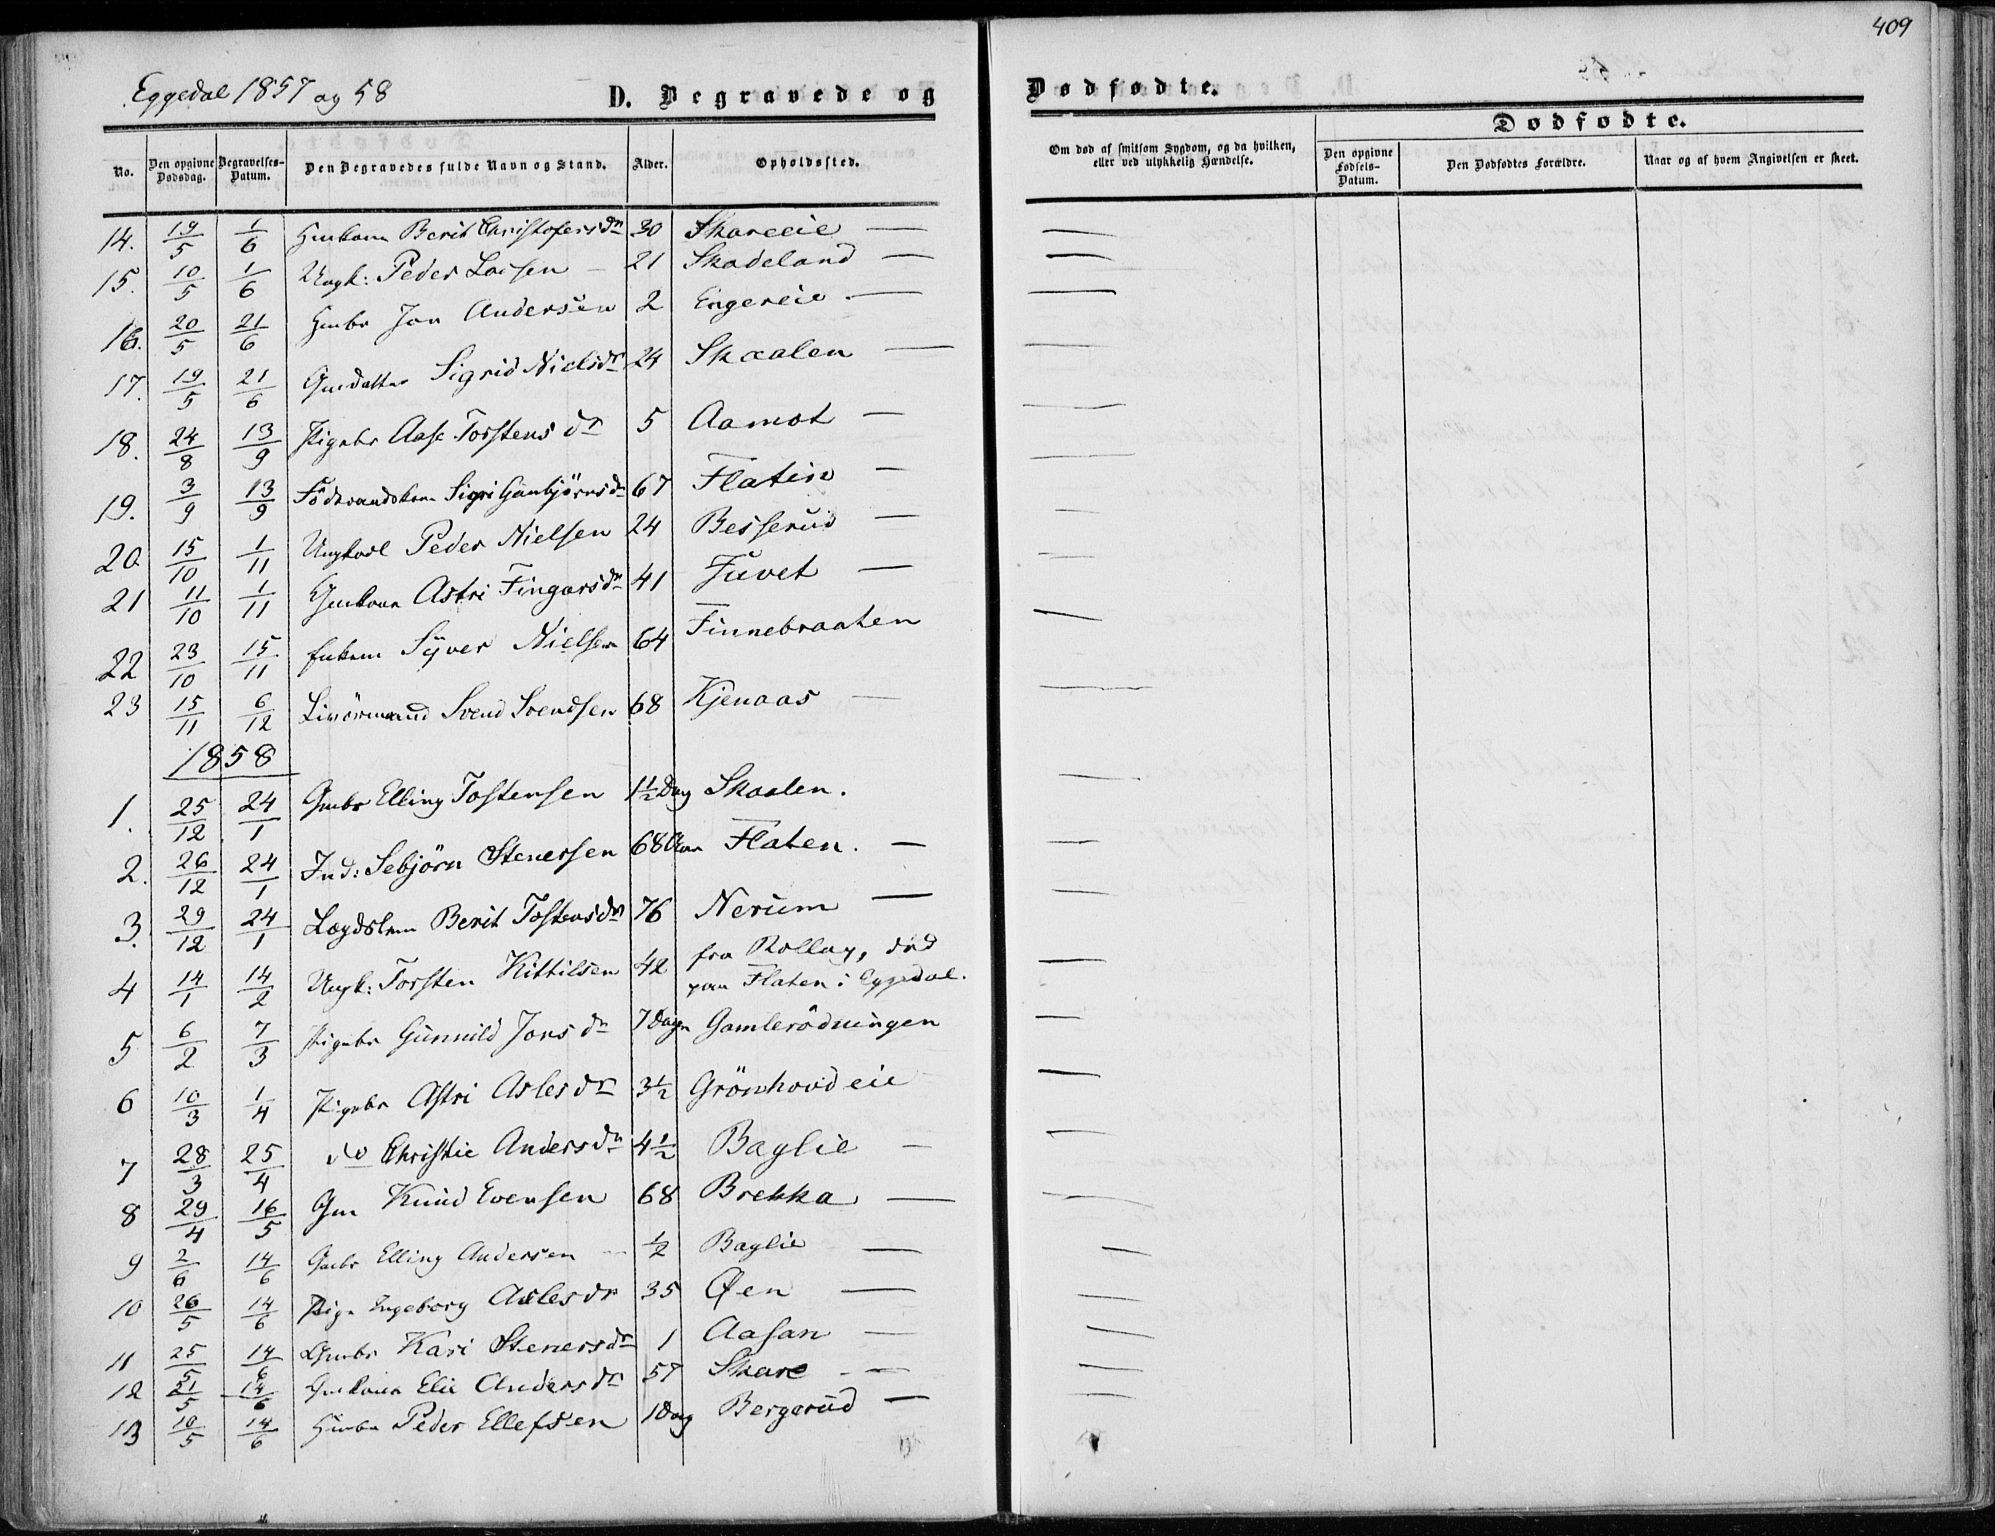 409
Eggedal 1857 og 58
D. Begravede og
Dødfødte.
No. Den opgivne Dødsdag. Begravelses-Datum. Den Begravedes fulde Navn og Stand. Alder. Opholdssted.
Om død af smitsom Sygdom, og da hvilken, eller ved ulykkelig Hændelse.
Dødfødte.
Den opgivne Fødsels-Datum. Den Dødfødtes Forældre. Naar og af hvem Angivelsen er skeet.
14. 19/5 1/6 Hmkone Berit Christofersdr 30 Skareeie — —
15. 10/5 1/6 Ungk: Peder Larsen – 21 Skadeland — —
16. 20/5 21/6 Hmbr Jon Andersen 2 Engereie — —
17. 19/5 21/6 Gmdatter Sigrid Nielsdr 24 Skaalen — —
18. 24/8 13/9 Pigebr Aase Torstens dr 5 Aamot — —
19. 3/9 13/9 Föderaadskone Sigri Gunbjörnsdr 67 Flaten — —
20 15/10 1/11 Ungkarl Peder Nielsen 24 Besserud — —
21 11/10 1/11 Gmkone Astri Fingarsdr 41 Juvet — —
22 23/10 15/11 Syver Nielsen 64 Finnebraaten —
23 15/11 6/12 Livörmand Svend Svendsen 68 Kjenaas — —
1858
1. 25/12 24/1 Gmbr Elling Tostensen 1½ Dag Skaalen. —
2. 26/12 24/1 Ind: Sebjörn Stenersen 68 Aar Flaten. — —
3. 29/12 24/1 Lægdslem Berit Tostensdr 76 Nerum — —
4 14/1 14/2 Ungk: Torsten Kittilsen 42 fra Rollag, död
paa Flaten i Eggedal. —
5 6/2 7/3 Pigebr Gunnild Jons dr 7 Dage Gamlerödningen —
6 10/3 1/4 Pigebr Astri Aslesdr 3½ Grönhovdeie —
7 28/3 25/4 do Christie Andersdr 4½ Baglie — —
8 29/4 16/5 Gm Knud Evensen 68 Brekka — —
9 2/6 14/6 Gmbr Elling Andersen – ½ Baglie — —
10 26/5 14/6 Pige Ingeborg Aslesdr 35 Øen — —
11 25/5 14/6 Gmbr Kari Stenersdr 1 Aasan — —
12 21/5 14/6 Gmkone Elie Andersdr 57 Skare – — —
13 10/5 14/6 Hmbr Peder Ellefsen 1 Dag Bergerud — —